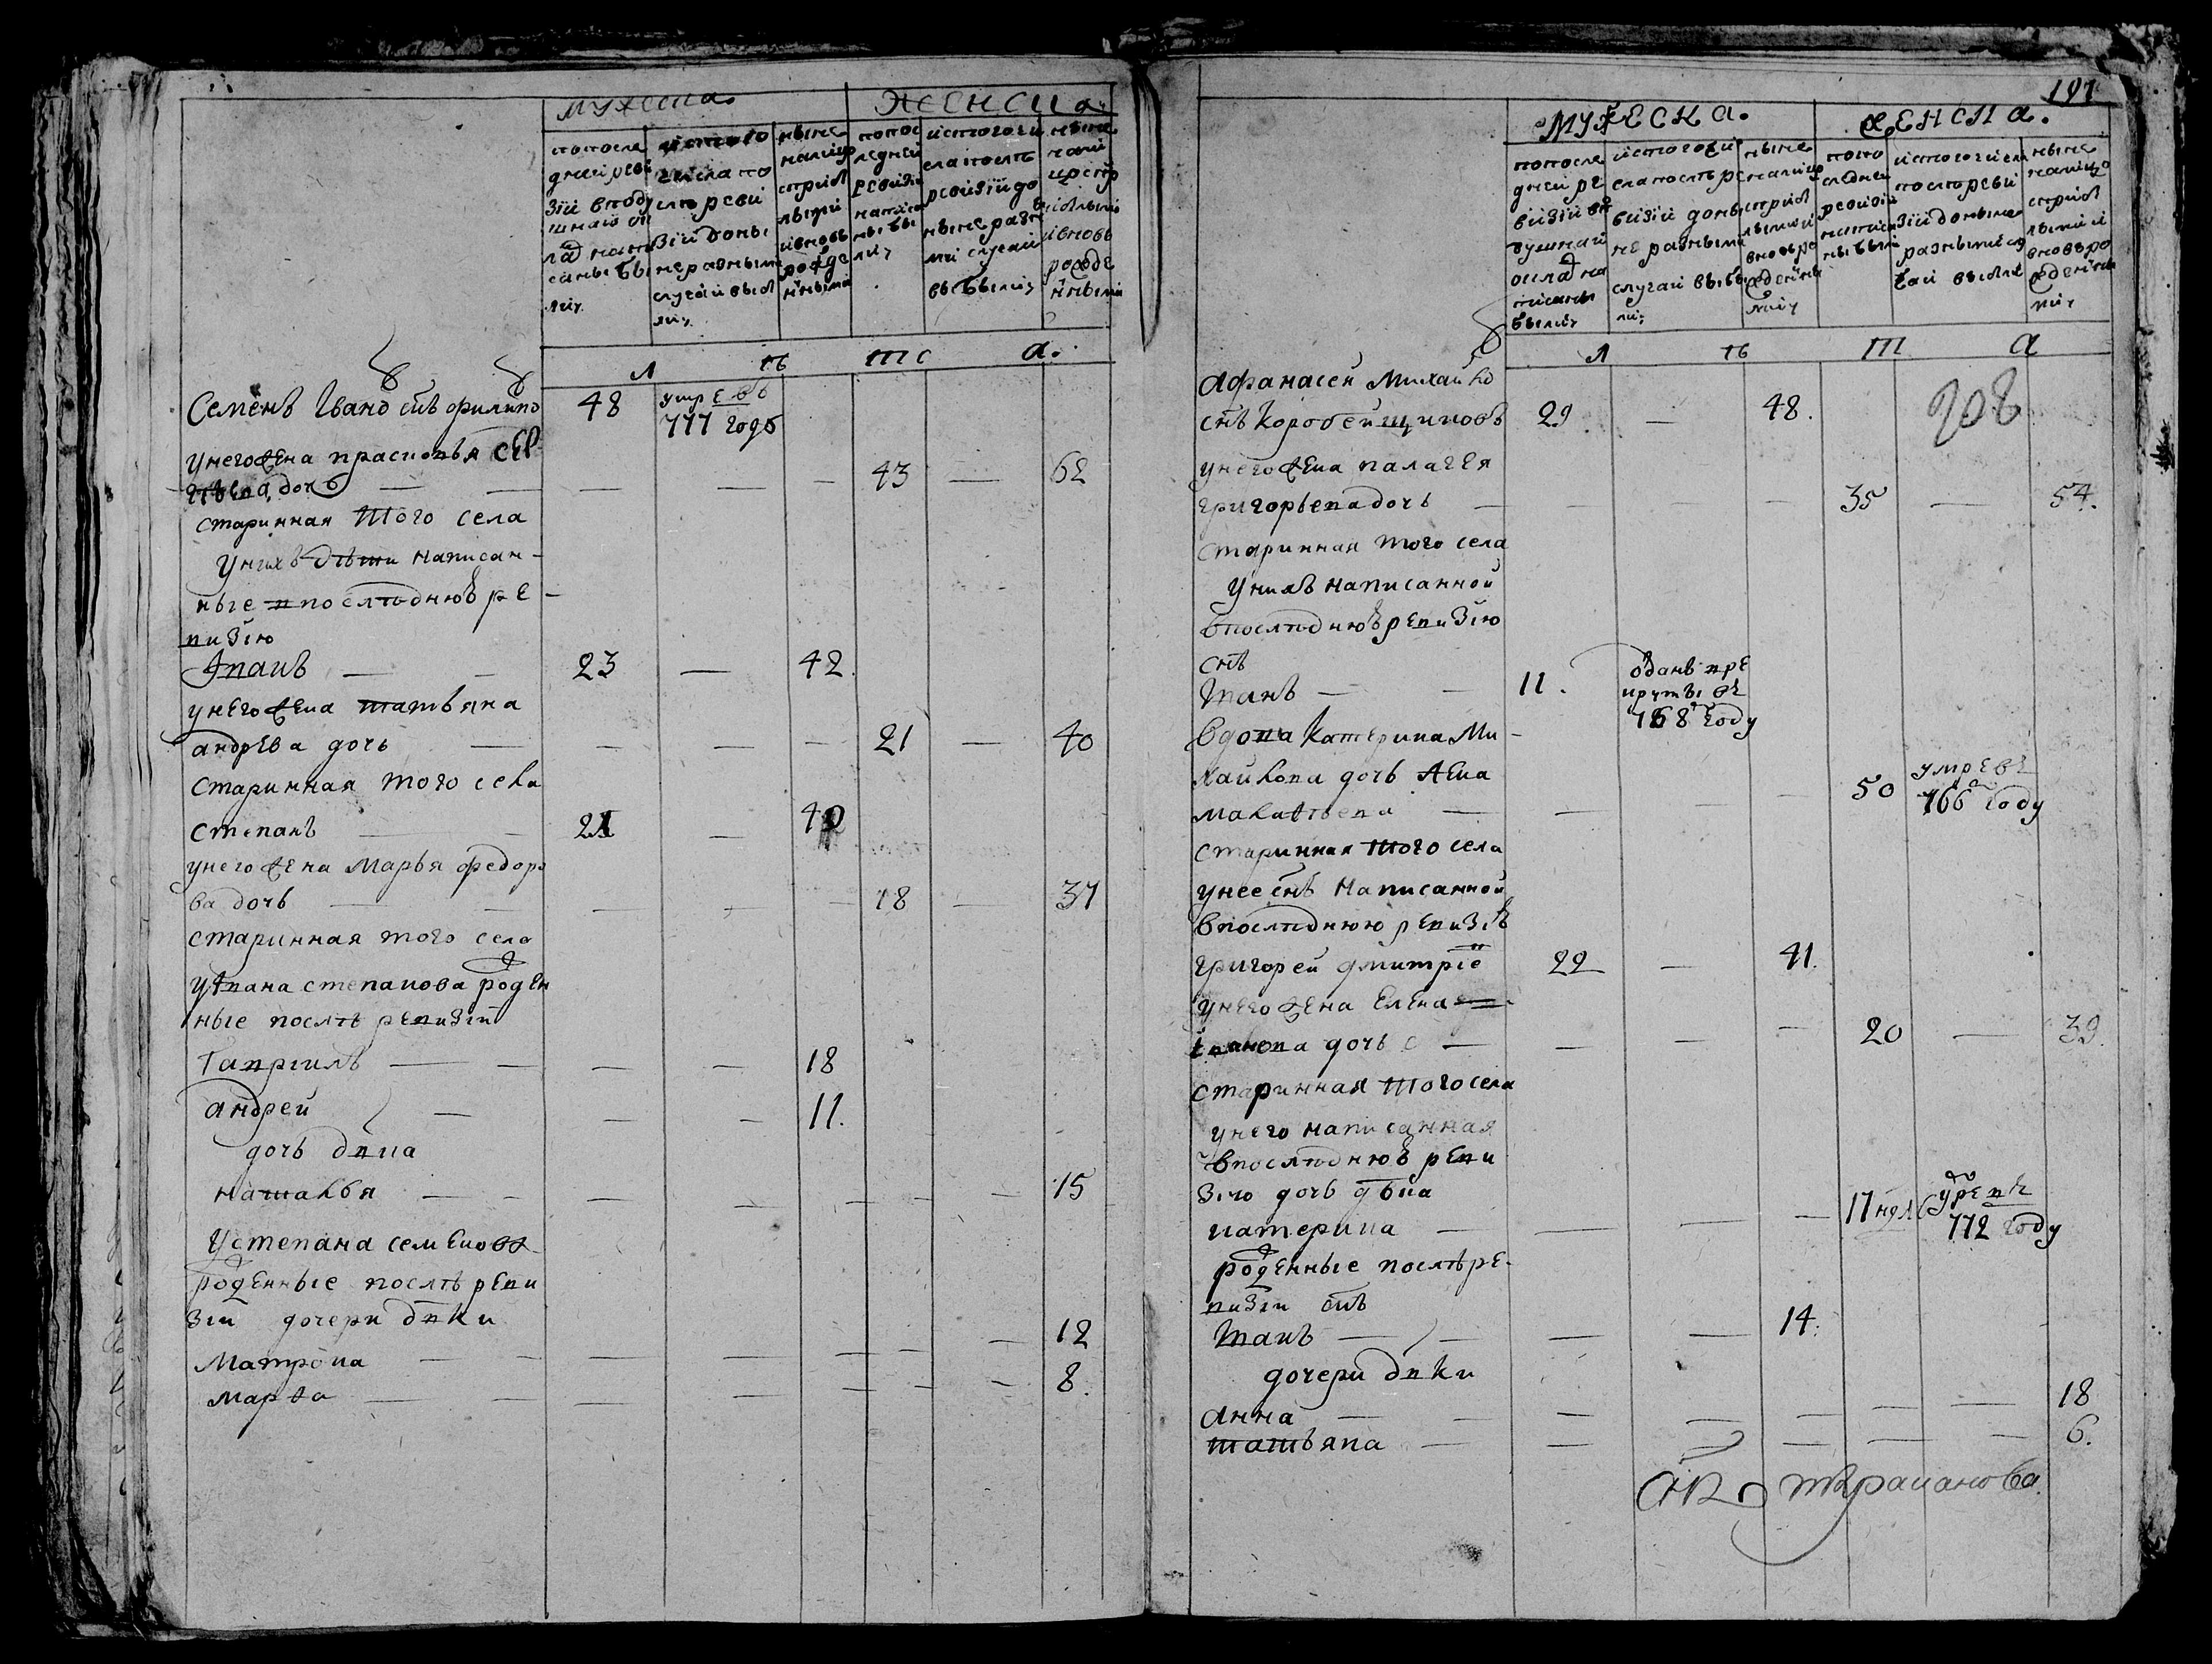 мужеска
женска
попосле
дней реви
зїи вподу
шной ок
лад напи
саны бы
ли
истого
числа по
слѣ реви
зїи доны
не разными
случаи выб
ли
ныне
налицо
спри
былыми
ивновь
рожде
нными
попос
ледней
ревизїи
написа
ны бы
ли
истогочи
сла послѣ
ревизїи до
ныне разн
ми случаи
выбыли
ныне
нали
цо спр
ибылыми
ивновь
рожде
нными
л ѣ т а
Семенъ Івано снъ филипо 48 умре въ
777 годѣ
унегожена прасковья сер
гѣева дочь — — — — — 43 — 62
старинная того села
Унихъ дѣти написан-
ные впослѣднюю ре-
визїю
Іванъ — 23 — 42
унегожена татьяна
андрева дочь — — — — 21 — 40
старинная того села
степанъ — 21 — 40
унегожена Марья федоро
ва дочь — — — — 18 — 37
старинная того села
уївана степанова рожден
ные послѣ ревизїи
Гаврилъ — — — — 18
андрей — — — 11.
дочь двка
наталья — — — — — — — 15
Устепана семенова
рожденные послѣ реви
зїи дочери двки
Матрона — — — — — — — 12
марѳа — — — — — — — 8.
197
мужеска.
женска.
попосле
дней ре
визїи вп
душной
оклад на
писаны
были
истогочи
сла послѣ ре
визїи доны
не разными
случаи выбы
ли
ныне
налицо
сприб
лыми и
вновьро
жденны
ми
попо
следней
ревизїи
написа
ны бы
истогочисл
послѣреви
зїи доныне
разнымислу
чаи выбыл
ныне
налицо
сприб
лыми и
вновьро
жденны
ми
л ѣ т а
Афанасей Михайло
снъ коробейщиковъ 29 — 48. 208
унегожена палагея
григорьевадочь — — — — 35 — 54.
старинная того села
Унихъ написанной
впослѣднюю ревизїю
снъ
Іванъ — — 11. оданъ в ре
круты въ
768 году
Вдова катерина Ми-
хайлова дочь жена
— — — — 50 умре въ
766 году
старинная того села
унее снъ написанной
впослѣднюю ревизїю
григорей дмитрїе 22 — 41.
унего жена елена
їванова дочь — — — — 20 — 39.
старинная тогосела
унего написанная
впослѣднюю реви
зїю дочь двка
катерина — — — — 17 умре въ
772 году
рожденные послѣре-
визїи снъ
Іванъ — — — — 14.
дочери двки
анна — — — — — — — 18
татьяна — — — — — — — 6.